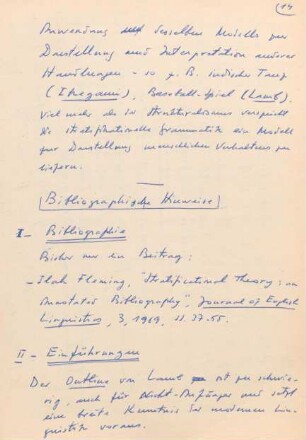 14
Anwendung desselben Modells zur
Darstellung und Interpretation anderer
Handlungen - so z.B. indische Tanz
(Ikegami), Baseball-Spiel (Lamb).
Viel mehr als der Strukturalismus verspricht
die stratifikationelle Grammatik ein Modell
zur Darstellung menschlichen Verhaltens zu
liefern.
Bibliographische Hinweise
I - Bibliographie
Bisher nur ein Beitrag:
- Ilah Fleming, "Stratificational Theory: an
Annotated Bibliography", Journal of English
Linguistics, 3, 1969, 37-55.
II - Einführungen
Der Outline von Lamb ist zu schwie-
rig, auch für Nicht-Anfänger und setzt
eine breite Kenntnis der modernen Lin-
guistik voraus.